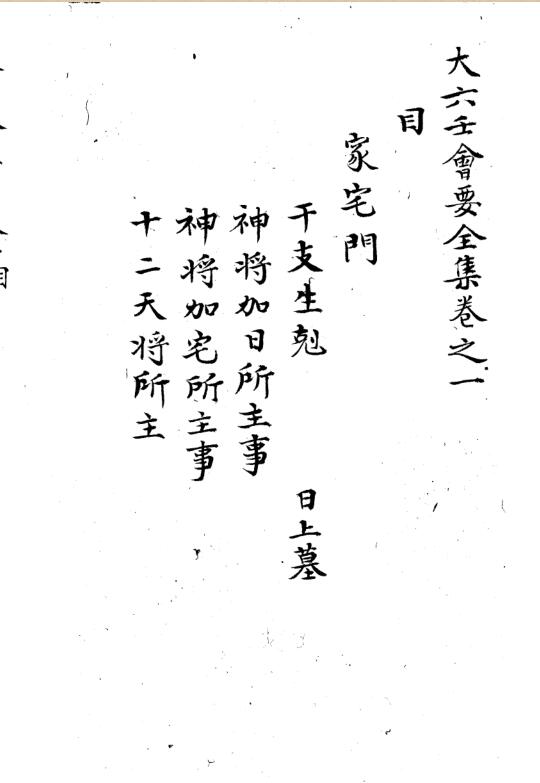 大六壬會要全集卷之一
目
家宅門
干支生剋　日上墓
神將加日所主事
神將加宅所主事
十二天將所主